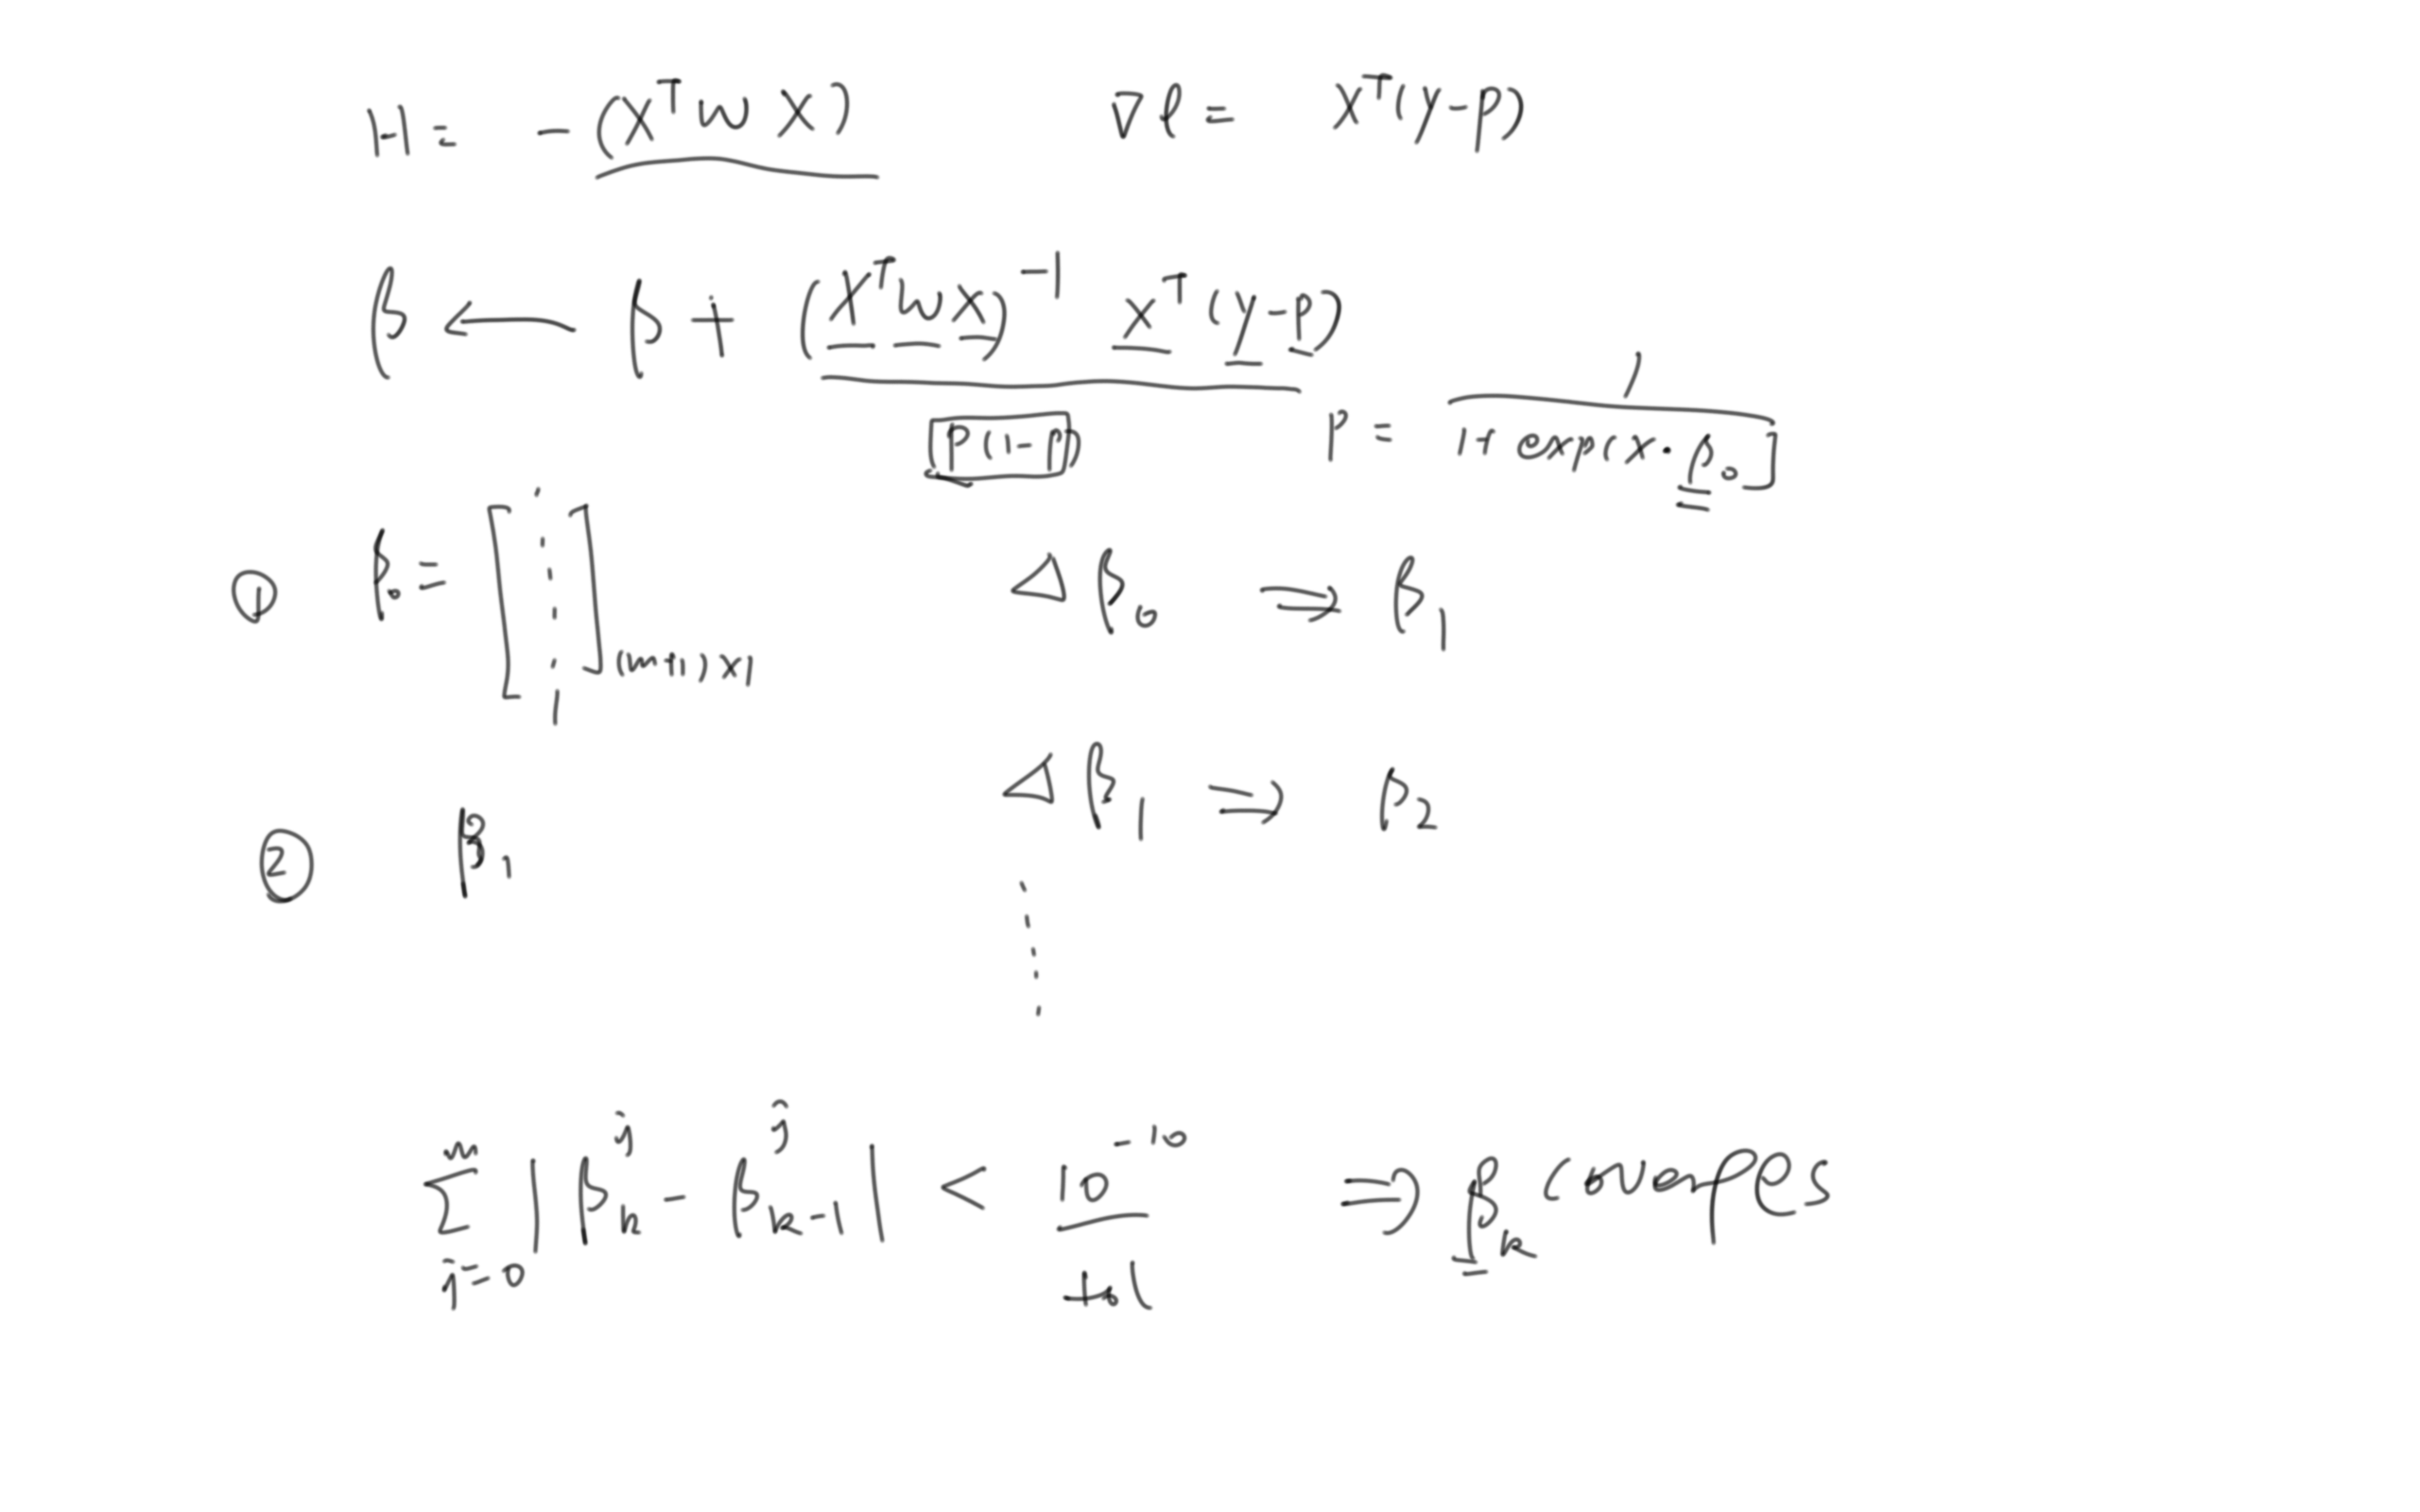 H = - (X^T W X) ∇ℓ = X^T (y - p)
β ← β + (X^T W X)^{-1} X^T (y - p)
P(1-P) p = 1 / (1 + exp(x · β_0]
① β_0 = [ ⋮ ]_{(m+1)×1} Δβ_0 ⇒ β_1
② β_1 Δβ_1 ⇒ β_2
⋮
∑_{j=0}^{m} | β_k^j - β_{k-1}^j | < 10^{-10} ⇒ β_k converges
tol